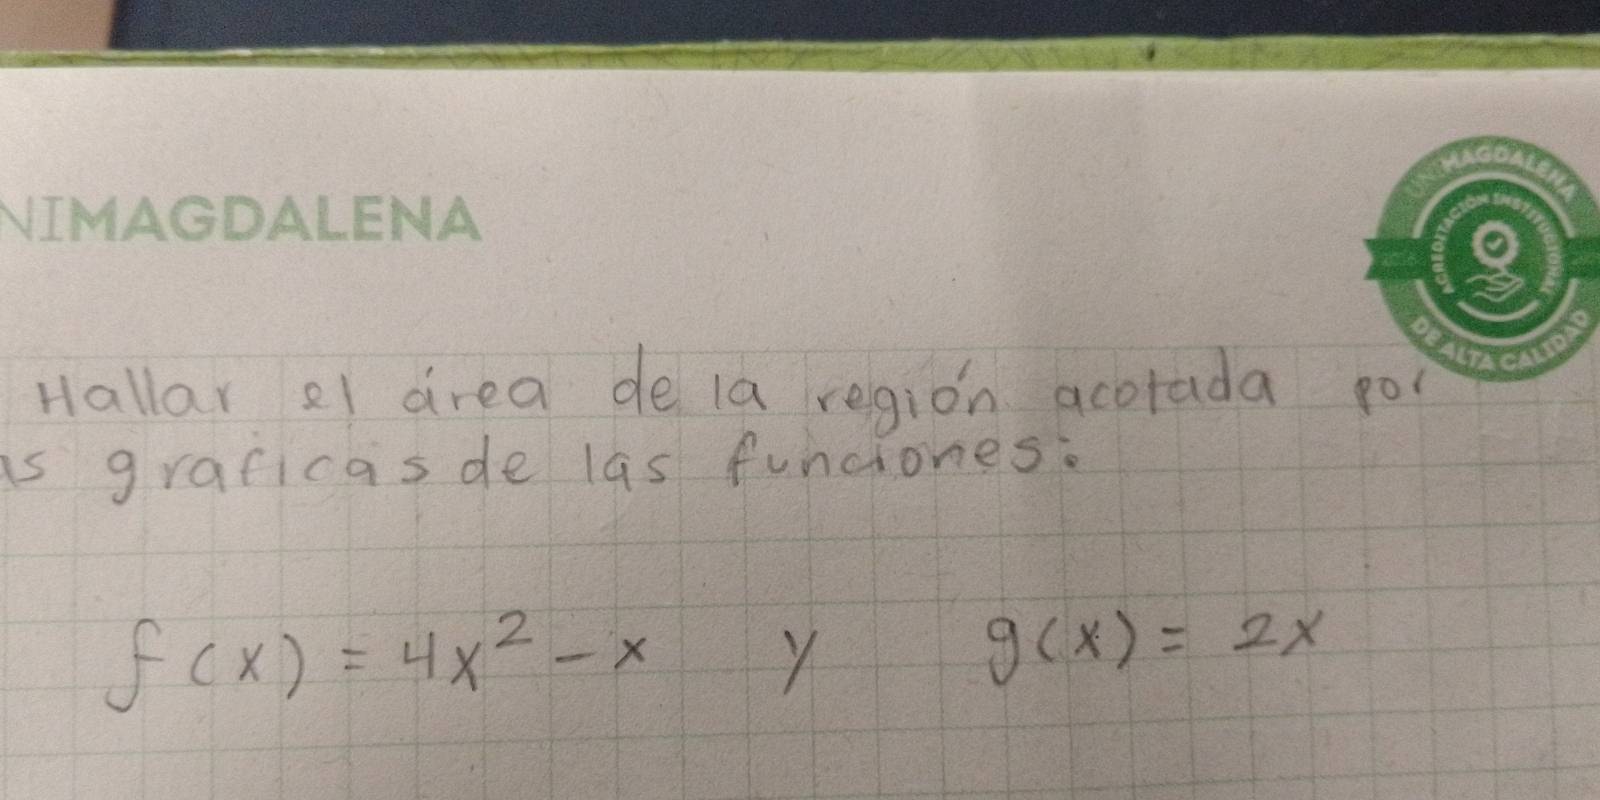 NIMAGDALENA
UNIMAGDALENA
ACREDITACIÓN INSTITUCIONAL
DE ALTA CALIDAD
Hallar el área de la región acotada por
as graficas de las funciones:
f(x) = 4x² - x y g(x) = 2x